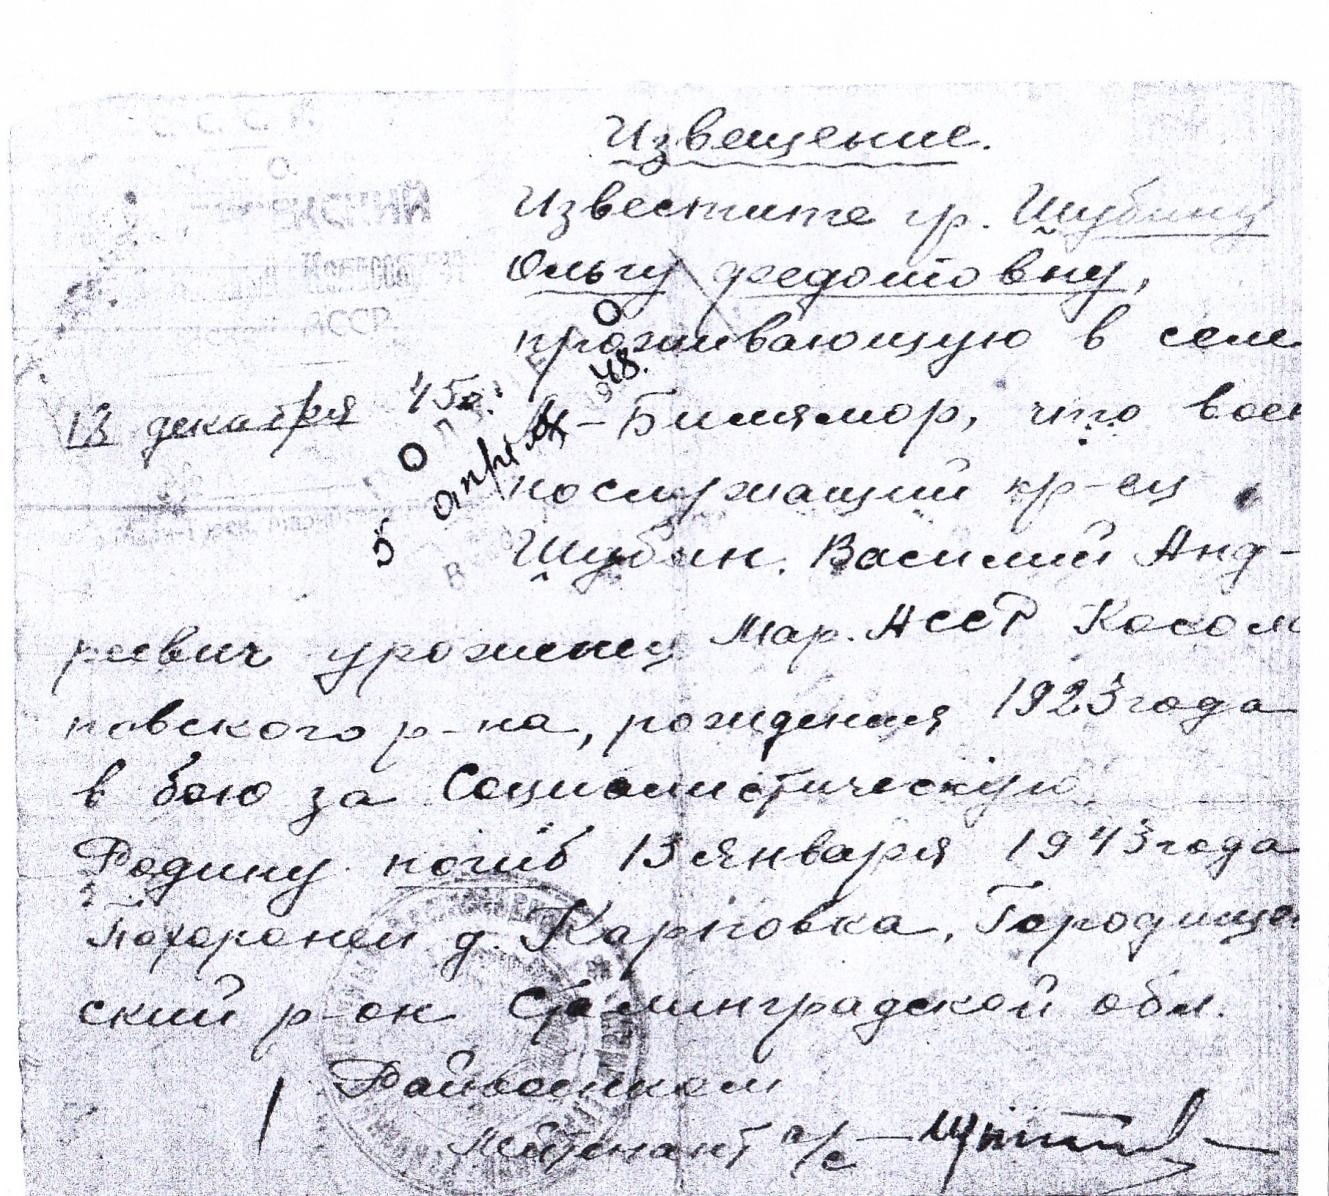 С. С. С. Р.
Извещение.
Известите гр. Шубину
Ольгу Федотовну,
АССР
О
проживающую в селе
13 декабря 45г.
Н-Билямор, что воен
О
5 апреля 48.
нослужащий кр-ец
Шубин. Василий Анд-
реевич уроженец Мар. АССР Косола
повского р-на, рождения 1923 года
в бою за Социалистическую
Родину погиб 13 января 1943 года
Похоронен д. Карповка, Городище
ский р-он Сталинградской обл.
Райвоенком
Лейтенант а/с